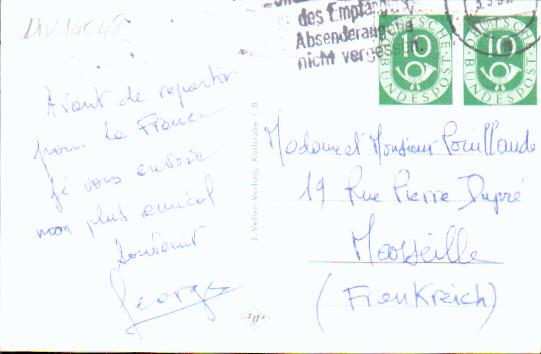 DIV14048
des Empfängers
Absenderangabe
nicht vergessen.
DEUTSCHE
10
BUNDESPOST
DEUTSCHE
10
BUNDESPOST
Avant de repartir
pour la France
je vous envoie
mon plus amical
souvenir
Georges
J. Velten-Verlag, Karlsruhe i. B.
Madame et Monsieur Pouillaude
19 Rue Pierre Dupré
Marseille
(Frankreich)